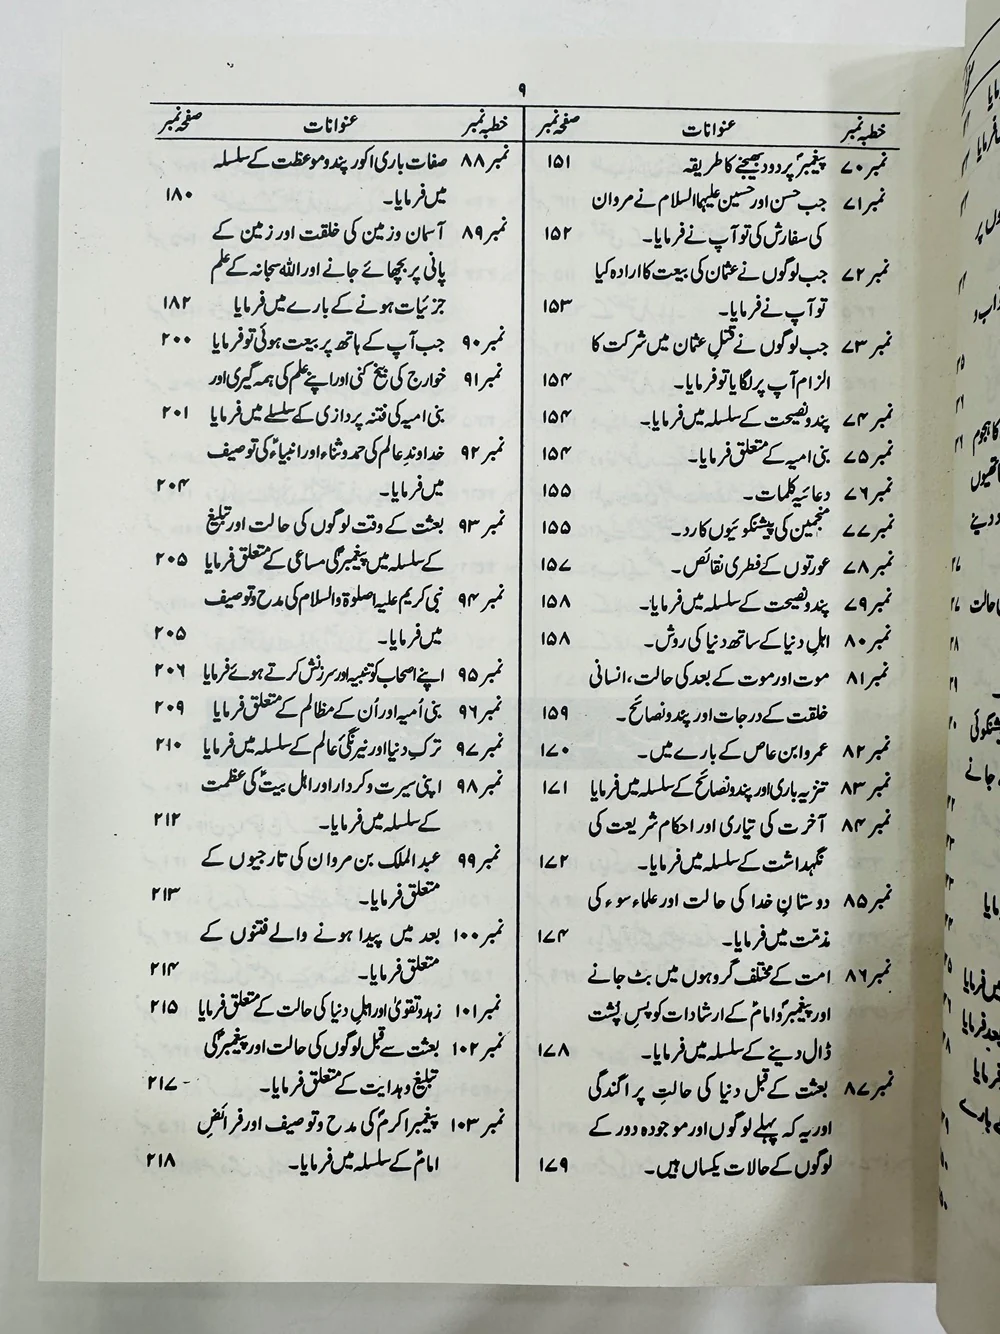 ۹
خطبہ نمبر عنوانات صفحہ نمبر
نمبر ۷۰ پیغمبرؐ پر درود بھیجنے کا طریقہ ۱۵۱
نمبر ۷۱ جب حسن اور حسین علیہما السلام نے مروان
کی سفارش کی تو آپ نے فرمایا۔ ۱۵۲
نمبر ۷۲ جب لوگوں نے عثمان کی بیعت کا ارادہ کیا
تو آپ نے فرمایا۔ ۱۵۳
نمبر ۷۳ جب لوگوں نے قتلِ عثمان میں شرکت کا
الزام آپ پر لگایا تو فرمایا۔ ۱۵۴
نمبر ۷۴ پند و نصیحت کے سلسلہ میں فرمایا۔ ۱۵۴
نمبر ۷۵ بنی امیہ کے متعلق فرمایا۔ ۱۵۴
نمبر ۷۶ دعائیہ کلمات۔ ۱۵۵
نمبر ۷۷ منجمین کی پیشنگوئیوں کا رد۔ ۱۵۵
نمبر ۷۸ عورتوں کے فطری نقائص۔ ۱۵۷
نمبر ۷۹ پند و نصیحت کے سلسلہ میں فرمایا۔ ۱۵۸
نمبر ۸۰ اہلِ دنیا کے ساتھ دنیا کی روش۔ ۱۵۸
نمبر ۸۱ موت اور موت کے بعد کی حالت، انسانی
خلقت کے درجات اور پند و نصائح۔ ۱۵۹
نمبر ۸۲ عمرو ابن عاص کے بارے میں۔ ۱۷۰
نمبر ۸۳ تنزیہ باری اور پند و نصائح کے سلسلہ میں فرمایا ۱۷۱
نمبر ۸۴ آخرت کی تیاری اور احکام شریعت کی
نگہداشت کے سلسلہ میں فرمایا۔ ۱۷۲
نمبر ۸۵ دوستانِ خدا کی حالت اور علماء سوء کی
مذمّت میں فرمایا۔ ۱۷۴
نمبر ۸۶ امت کے مختلف گروہوں میں بٹ جانے
اور پیغمبرؐ و امامؑ کے ارشادات کو پسِ پُشت
ڈال دینے کے سلسلہ میں فرمایا۔ ۱۷۸
نمبر ۸۷ بعثت کے قبل دنیا کی حالتِ پراگندگی
اور یہ کہ پہلے لوگوں اور موجودہ دور کے
لوگوں کے حالات یکساں ہیں۔ ۱۷۹
خطبہ نمبر عنوانات صفحہ نمبر
نمبر ۸۸ صفات باری اکور پند و موعظت کے سلسلہ
میں فرمایا۔ ۱۸۰
نمبر ۸۹ آسمان و زمین کی خلقت اور زمین کے
پانی پر بچھائے جانے اور اللہ سبحانہ کے علم
جزئیات ہونے کے بارے میں فرمایا ۱۸۲
نمبر ۹۰ جب آپ کے ہاتھ پر بیعت ہوئی تو فرمایا ۲۰۰
نمبر ۹۱ خوارج کی بیخ کنی اور اپنے علم کی ہمہ گیری اور
بنی امیہ کی فتنہ پردازی کے سلسلے میں فرمایا ۲۰۱
نمبر ۹۲ خداوندِ عالم کی حمد و ثناء اور انبیاءؑ کی توصیف
میں فرمایا۔ ۲۰۴
نمبر ۹۳ بعثت کے وقت لوگوں کی حالت اور تبلیغ
کے سلسلہ میں پیغمبرؐ کی مساعی کے متعلق فرمایا ۲۰۵
نمبر ۹۴ نبی کریم علیہ اصلوۃ والسلام کی مدح و توصیف
میں فرمایا۔ ۲۰۵
نمبر ۹۵ اپنے اصحاب کو تنبیہ اور سرزنش کرتے ہوئے فرمایا ۲۰۶
نمبر ۹۶ بنی اُمیہ اور اُن کے مظالم کے متعلق فرمایا ۲۰۹
نمبر ۹۷ ترکِ دنیا اور نیرنگئ عالم کے سلسلہ میں فرمایا۔ ۲۱۰
نمبر ۹۸ اپنی سیرت و کردار اور اہلِ بیتؑ کی عظمت
کے سلسلہ میں فرمایا۔ ۲۱۲
نمبر ۹۹ عبد الملک بن مروان کی تارجیوں کے
متعلق فرمایا۔ ۲۱۳
نمبر ۱۰۰ بعد میں پیدا ہونے والے فتنوں کے
متعلق فرمایا۔ ۲۱۴
نمبر ۱۰۱ زہد و تقویٰ اور اہلِ دنیا کی حالت کے متعلق فرمایا ۲۱۵
نمبر ۱۰۲ بعثت سے قبل لوگوں کی حالت اور پیغمبرؐ کی
تبلیغ و ہدایت کے متعلق فرمایا۔ ۲۱۷
نمبر ۱۰۳ پیغمبر اکرمؐ کی مدح و توصیف اور فرائضِ
امامؑ کے سلسلہ میں فرمایا۔ ۲۱۸